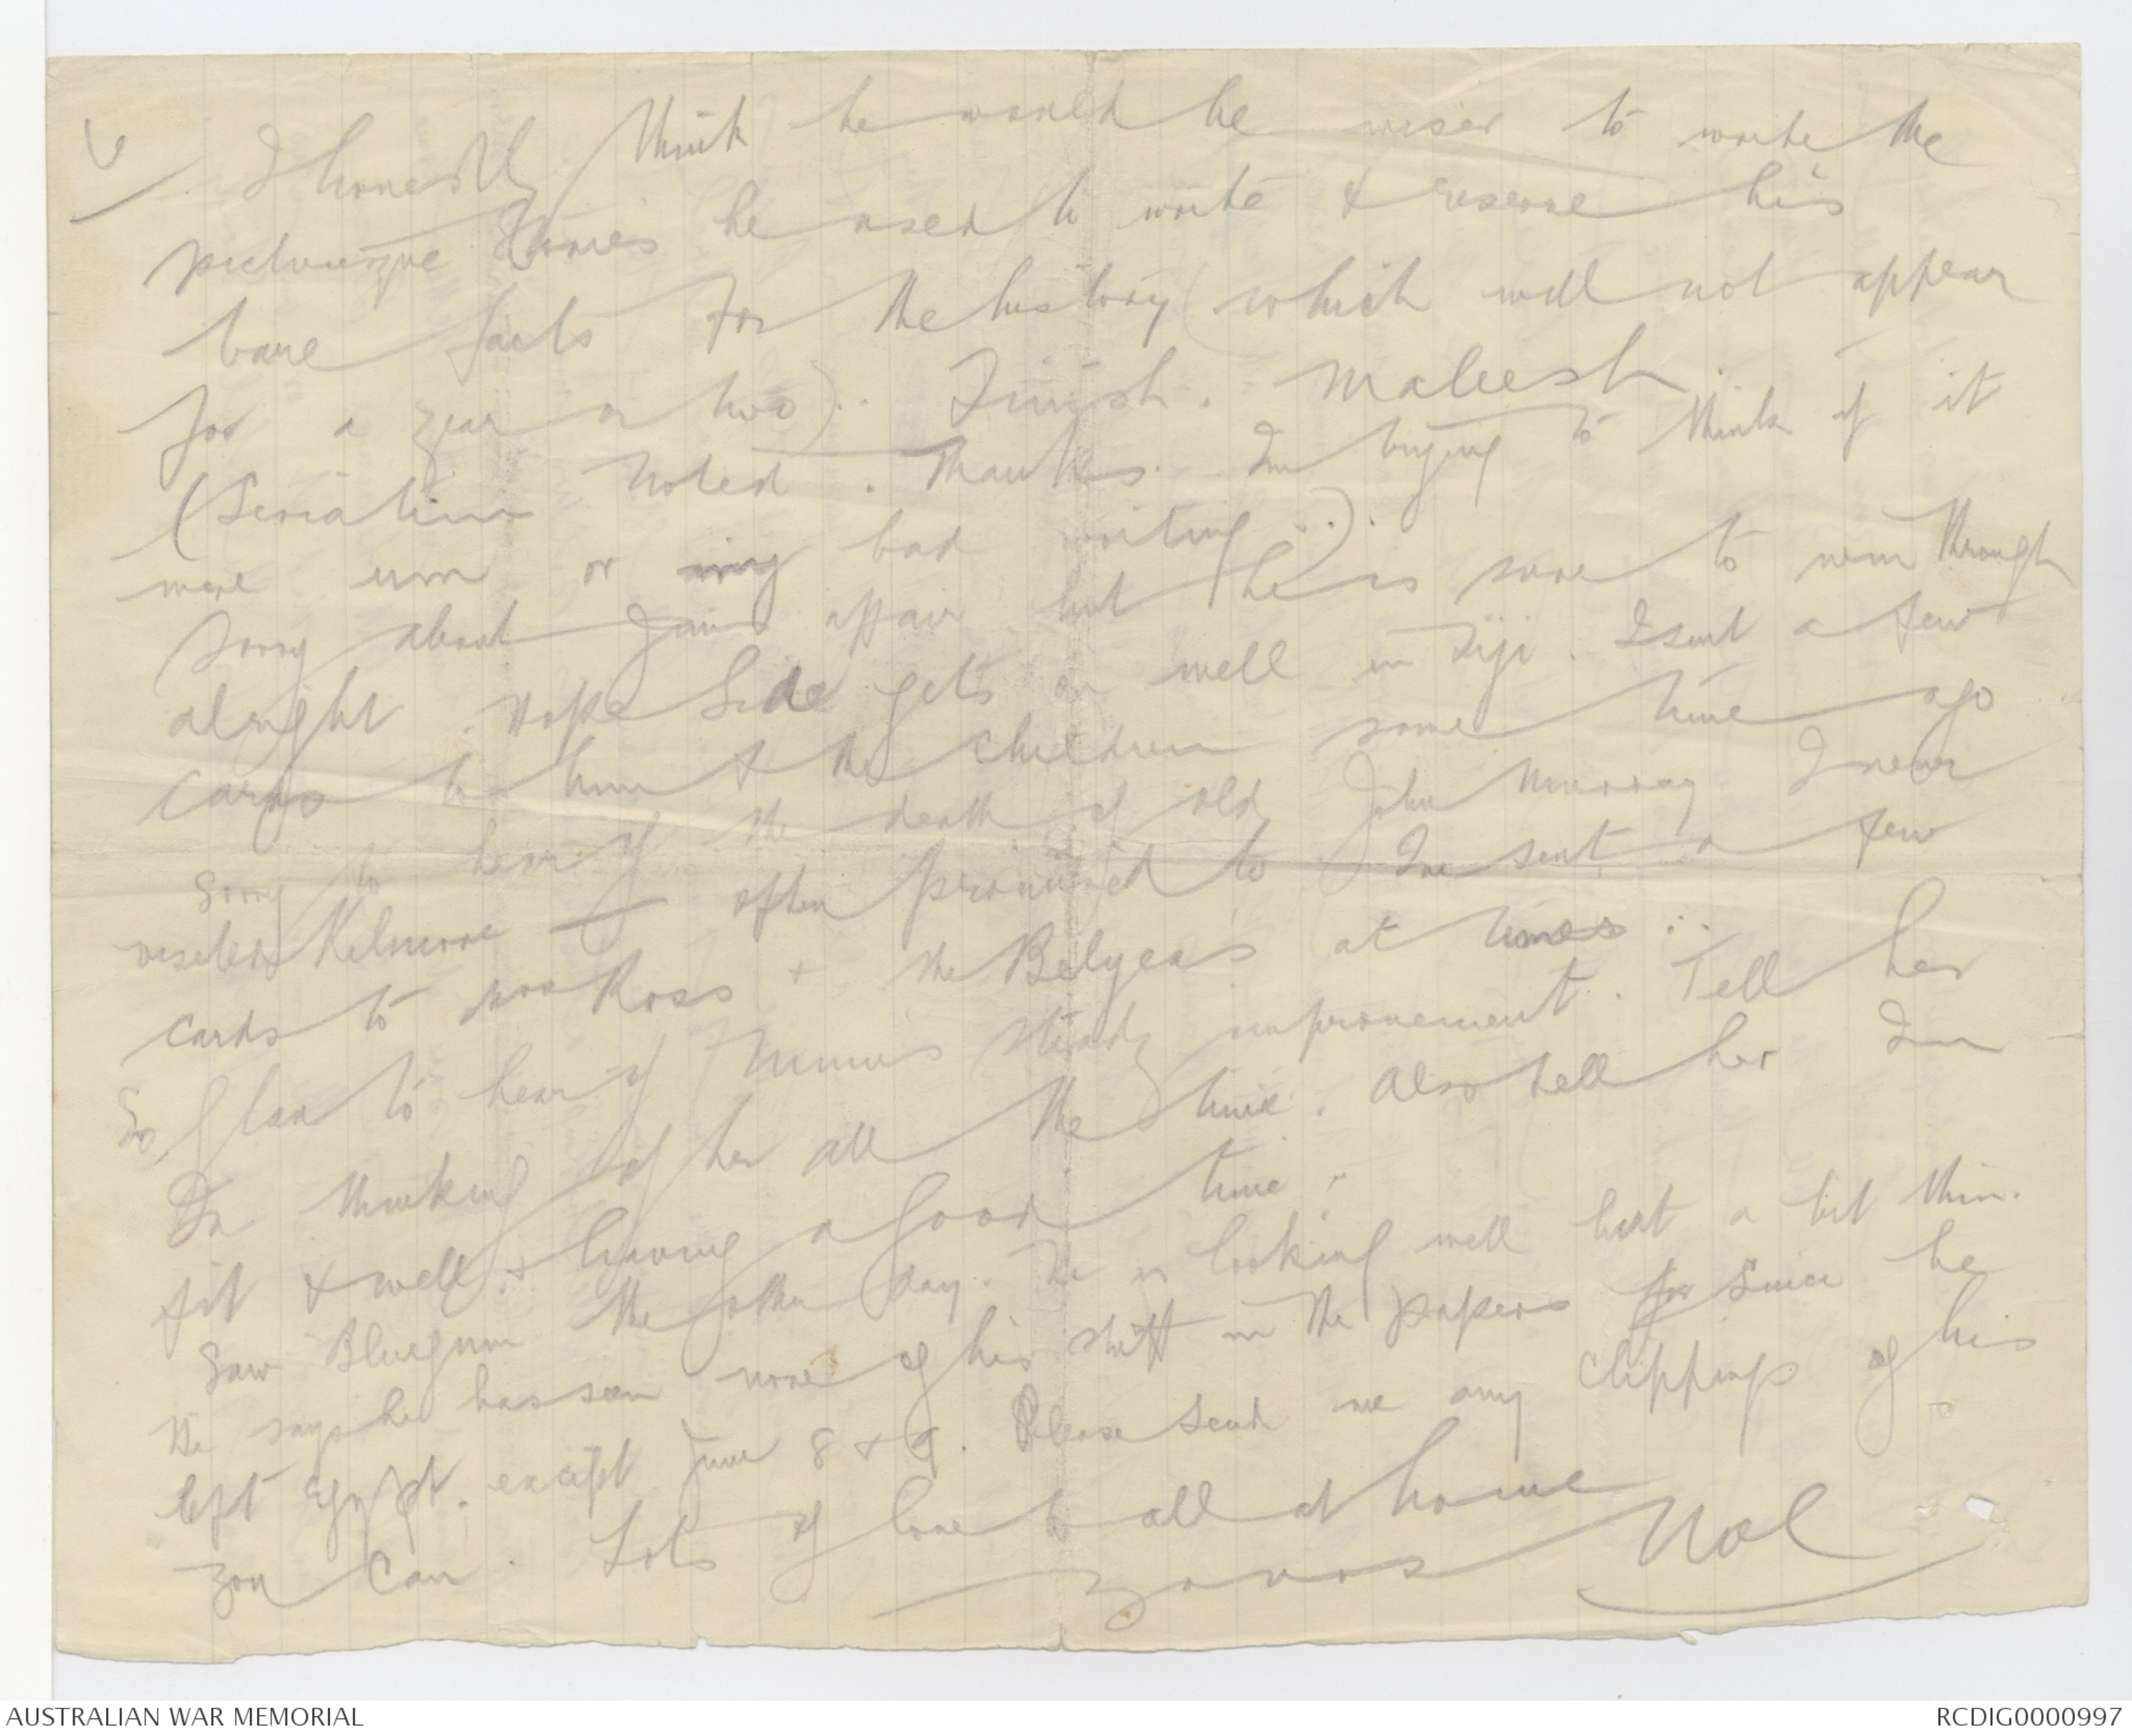 6
I honestly think he would be wiser to write the
picturesque stories he used to write & reserve his
bare facts for the history (which will not appear
for a year or two). Finish. Maleesh.
(Seriatim noted. Thanks. Im trying to think if it
were um or my bad writing ..).
Sorry about affair but he is sure to win through
alright. Hope Side gets on well in Fiji. I sent a few
cards to him & the children some time ago
Sorry to hear of the death of old John Murray I never
visited Kilmore often promised to Ive sent a few
cards to Mrs Ross & the Belyea's at times ..
So glad to hear of steady improvement. Tell her
Im thinking of her all the time. Also tell her Im
fit & well & having a good time ..
Saw Bluegum the other day. He is looking well but a bit thin.
He says he has seen none of his stuff in the papers for since he
left Egypt. except June 8 & 9. Please send me any clippings of his
you can. Lots of love to all at home
Yours Nol
AUSTRALIAN WAR MEMORIAL
RCDIG0000997